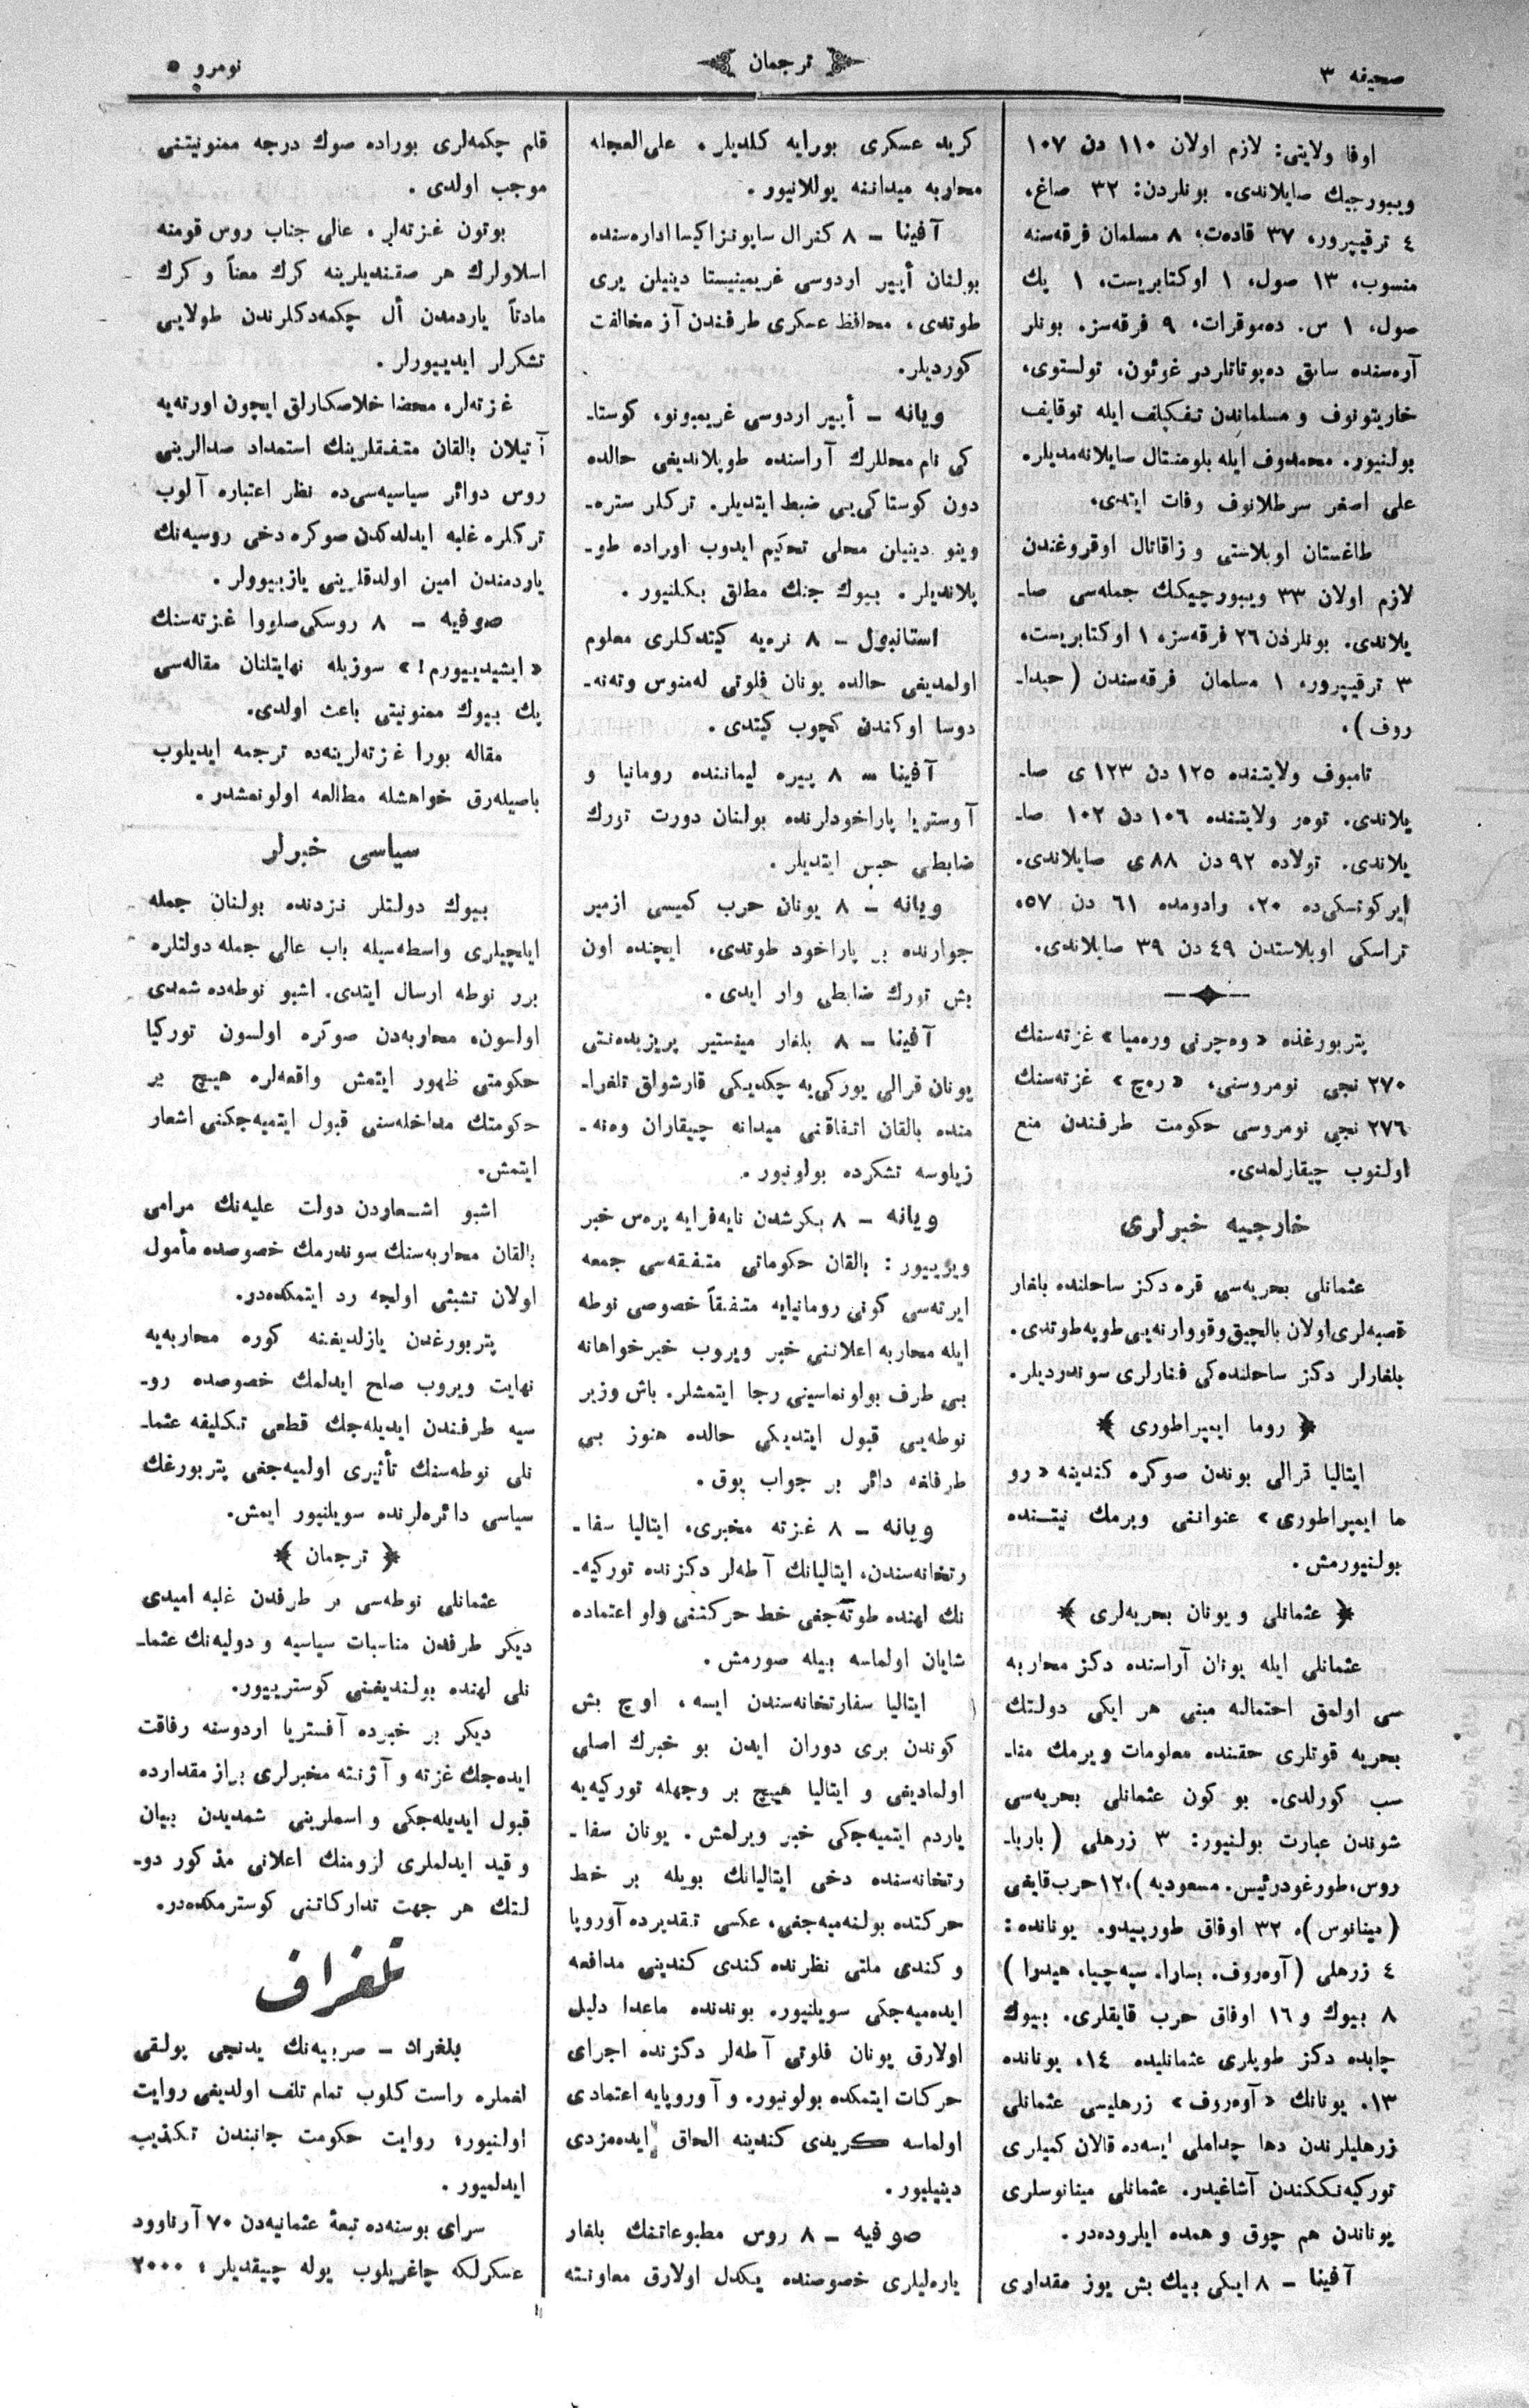 صحيفه ٣
ترجمان
نومرو ٥
اوفا ولايتى: لازم اولان ١١٠ دن ١٠٧
ويبورجيك صايلاندى. بونلردن: ٣٢ صاغ،
٤ ترقيپرور، ٣٧ قادەت، ٨ مسلمان فرقه‌سنه
منسوب، ١٣ صول، ١ اوكتابريست، ١ پك
صول، ١ س. دەموقرات، ٩ فرقه‌سز. بونلر
آره‌سنده سابق دەپوتاتلردر غوئون، تولستوى،
خاريتونوف و مسلماندن تفكيلف ايله توقايف
بولنيور. محمدوف ايله بلومنتال صايلانه‌مديلر.
على اصغر سرطلانوف وفات ايتدى.
طاغستان اوبلاستى و زاقاتال اوقروغندن
لازم اولان ٣٣ ويبورچيكك جمله‌سى صا-
يلاندى. بونلردن ٢٦ فرقه‌سز، ١ اوكتابريست،
٣ ترقيپرور، ١ مسلمان فرقه‌سندن (حيدا-
روف).
تامبوف ولايتنده ١٢٥ دن ١٢٣ ى صا-
يلاندى. توەر ولايتنده ١٠٦ دن ١٠٢ صا-
يلاندى. تولاده ٩٢ دن ٨٨ ى صايلاندى.
ايركوتسكى‌ده ٢٠، رادومده ٦١ دن ٥٧،
تراسكى اوبلاستدن ٤٩ دن ٣٩ صايلاندى.
پتربورغده «وەچرنى ورەميا» غزته‌سنك
٢٧٠ نجى نومروسنى، «رەچ» غزته‌سنك
٢٧٦ نجى نومروسى حكومت طرفندن منع
اولنوب چيقارلمدى.
خارجيه خبرلرى
عثمانلى بحريه‌سى قره دكز ساحلنده بلغار
قصبه‌لرى اولان بالچيق و قووارنه‌يى طوپه طوتدى.
بلغارلر دكز ساحلنده‌كى فنارلرى سوندرديلر.
﴿ روما ايمپراطورى ﴾
ايتاليا قرالى بوندن صوكره كندينه «رو
ما ايمپراطورى» عنواننى ويرمك نيتنده
بولنيورمش.
﴿ عثمانلى و يونان بحريه‌لرى ﴾
عثمانلى ايله يونان آراسنده دكز محاربه
سى اولمق احتماله مبنى هر ايكى دولتك
بحريه قوتلرى حقنده معلومات ويرمك منا-
سب كورلدى. بو كون عثمانلى بحريه‌سى
شوندن عبارت بولنيور: ٣ زرهلى (باربا-
روس، طورغودرئيس، مسعوديه)، ١٢ حرب قايغى
(مينانوس)، ٣٢ اوفاق طورپيدو. يونانده:
٤ زرهلى (آوەروف، پسارا، سپەچيا، هيدرا)
٨ بيوك و ١٦ اوفاق حرب قايقلرى. بيوك
چاپده دكز طوپلرى عثمانليده ١٤، يونانده
١٣. يونانك «آوەروف» زرهليسى عثمانلى
زرهليلرندن دها چداملى ايسه‌ده قالان كميلرى
توركيه‌نككندن آشاغيدر. عثمانلى مينانوسلرى
يوناندن هم چوق و همده ايلروده‌در.
آفينا – ٨ ايكى بيك بش يوز مقدارى
كريد عسكرى بورايه كلديلر. على العجله
محاربه ميداننه يوللانيور.
آفينا – ٨ كنرال ساپونزاكيسا اداره‌سنده
بولنان أپير اردوسى غريمينيستا دينيلن يرى
طوتدى، محافظ عسكرى طرفندن آز مخالفت
كورديلر.
ويانه – أپير اردوسى غريمبونو، كوستا-
كى نام محللرك آراسنده طوپلانديغى حالده
دون كوستاكى‌يى ضبط ايتديلر. تركلر ستره-
وينو دينيلن محلى تحكيم ايدوب اوراده طو-
پلانديلر. بيوك جنك مطلق بكلنيور.
استانبول – ٨ نره‌يه كيتدكلرى معلوم
اولمديغى حالده يونان فلوتى لەمنوس و تەنه-
دوسا اوكندن كچوب كيتدى.
آفينا – ٨ پيره ليماننده رومانيا و
آوستريا پاراخودلرنده بولنان دورت تورك
ضابطى حبس ايتديلر.
ويانه – ٨ يونان حرب كميسى ازمير
جوارنده بر پاراخود طوتدى، ايچنده اون
بش تورك ضابطى وار ايدى.
آفينا – ٨ بلغار مينستير پريزيدەنتى
يونان قرالى يوركى‌يه چكديكى قارشولق تلغرا-
منده بالقان اتفاقنى ميدانه چيقاران وەنه-
زيلوسه تشكرده بولونيور.
ويانه – ٨ بكرشدن نايەفرايه پرەس خبر
ويرييور: بالقان حكوماتى متفقه‌سى جمعه
ايرته‌سى كونى رومانيايه متفقاً خصوصى نوطه
ايله محاربه اعلاننى خبر ويروب خيرخواهانه
بى طرف بولونماسينى رجا ايتمشلر. باش وزير
نوطه‌يى قبول ايتديكى حالده هنوز بى
طرفلغه دائر بر جواب يوق.
ويانه – ٨ غزته مخبرى، ايتاليا سفا-
رتخانه‌سندن، ايتاليانك آطه‌لر دكزنده توركيه-
نك لهنده طوته‌جغى خط حركتنى ولو اعتماده
شايان اولماسه بيله صورمش.
ايتاليا سفارتخانه‌سندن ايسه، اوچ بش
كوندن برى دوران ايدن بو خبرك اصلى
اولماديغى و ايتاليا هيچ بر وجهله توركيه‌يه
ياردم ايتميه‌جكى خبر ويرلمش. يونان سفا-
رتخانه‌سنده دخى ايتاليانك بويله بر خط
حركتده بولنه‌ميه‌جغى، عكسى تقديرده آوروپا
و كندى ملتى نظرنده كندى كندينى مدافعه
ايده‌ميه‌جكى سويلنيور. بوندنده ماعدا دليل
اولارق يونان فلوتى آطه‌لر دكزنده اجراى
حركات ايتمكده بولونيور. و آوروپايه اعتمادى
اولماسه كريدى كندينه الحاق ايده‌مزدى
دينيليور.
صوفيه – ٨ روس مطبوعاتنك بلغار
ياره‌ليلرى خصوصنده يكدل اولارق معاونته
قلم چكمه‌لرى بوراده صوك درجه ممنونيتنى
موجب اولدى.
بوتون غزته‌لر، عالى جناب روس قومنه
اسلاولرك هر صقنديلرينه كرك معناً و كرك
مادتاً ياردمدن أل چكمه‌دكلرندن طولايى
تشكرلر ايدييورلر.
غزته‌لر، محضا خلاصكارلق ايچون اورته‌يه
آتيلان بالقان متفقلرينك استمداد صدالرينى
روس دوائر سياسيه‌سى‌ده نظر اعتباره آلوب
تركلره غلبه ايدلدكدن صوكره دخى روسيه‌نك
ياردمندن امين اولدقلرينى يازييوولر.
صوفيه – ٨ روسكى‌صلووا غزته‌سنك
«ايشيدييورم!» سوزيله نهايتلنان مقاله‌سى
پك بيوك ممنونيتى باعث اولدى.
مقاله بورا غزته‌لرينه‌ده ترجمه ايديلوب
باصيله‌رق خواهشله مطالعه اولونمشدر.
سياسى خبرلر
بيوك دولتلر نزدنده بولنان جمله
ايلچيلرى واسطه‌سيله باب عالى جمله دولتلره
برر نوطه ارسال ايتدى. اشبو نوطه‌ده شمدى
اولسون، محاربه‌دن صوكره اولسون توركيا
حكومتى ظهور ايتمش واقعه‌لره هيچ بر
حكومتك مداخله‌سنى قبول ايتميه‌جكنى اشعار
ايتمش.
اشبو اشعاردن دولت عليه‌نك مرامى
بالقان محاربه‌سنك سوندرمك خصوصده مأمول
اولان تشبثى اولجه رد ايتمكده‌در.
پتربورغدن يازلديغنه كوره محاربه‌يه
نهايت ويروب صلح ايدلمك خصوصده رو-
سيه طرفندن ايديله‌جك قطعى تكليفه عثما-
نلى نوطه‌سنك تأثيرى اولميه‌جغى پتربورغك
سياسى دائره‌لرنده سويلنيور ايمش.
﴿ ترجمان ﴾
عثمانلى نوطه‌سى بر طرفدن غلبه اميدى
ديكر طرفدن مناسبات سياسيه و دوليه‌نك عثما-
نلى لهنده بولنديغنى كوستريیور.
ديكر بر خبرده آفستريا اردوسنه رفاقت
ايده‌جك غزته و آژنته مخبرلرى براز مقدارده
قبول ايديله‌جكى و اسملرينى شمديدن بيان
و قيد ايدلملرى لزومنك اعلانى مذكور دو-
لتك هر جهت تداركاتنى كوسترمكده‌در.
تلغراف
بلغراد – صربيه‌نك يدنجى پولقى
لغملره راست كلوب تمام تلف اولديغى روايت
اولنيور، روايت حكومت جانبندن تكذيب
ايدلميور.
سراى بوسنه‌ده تبعۀ عثمانيه‌دن ٧٠ آرناوود
عسكرلكه چاغريلوب يوله چيقديلر؛ ٢٠٠٠